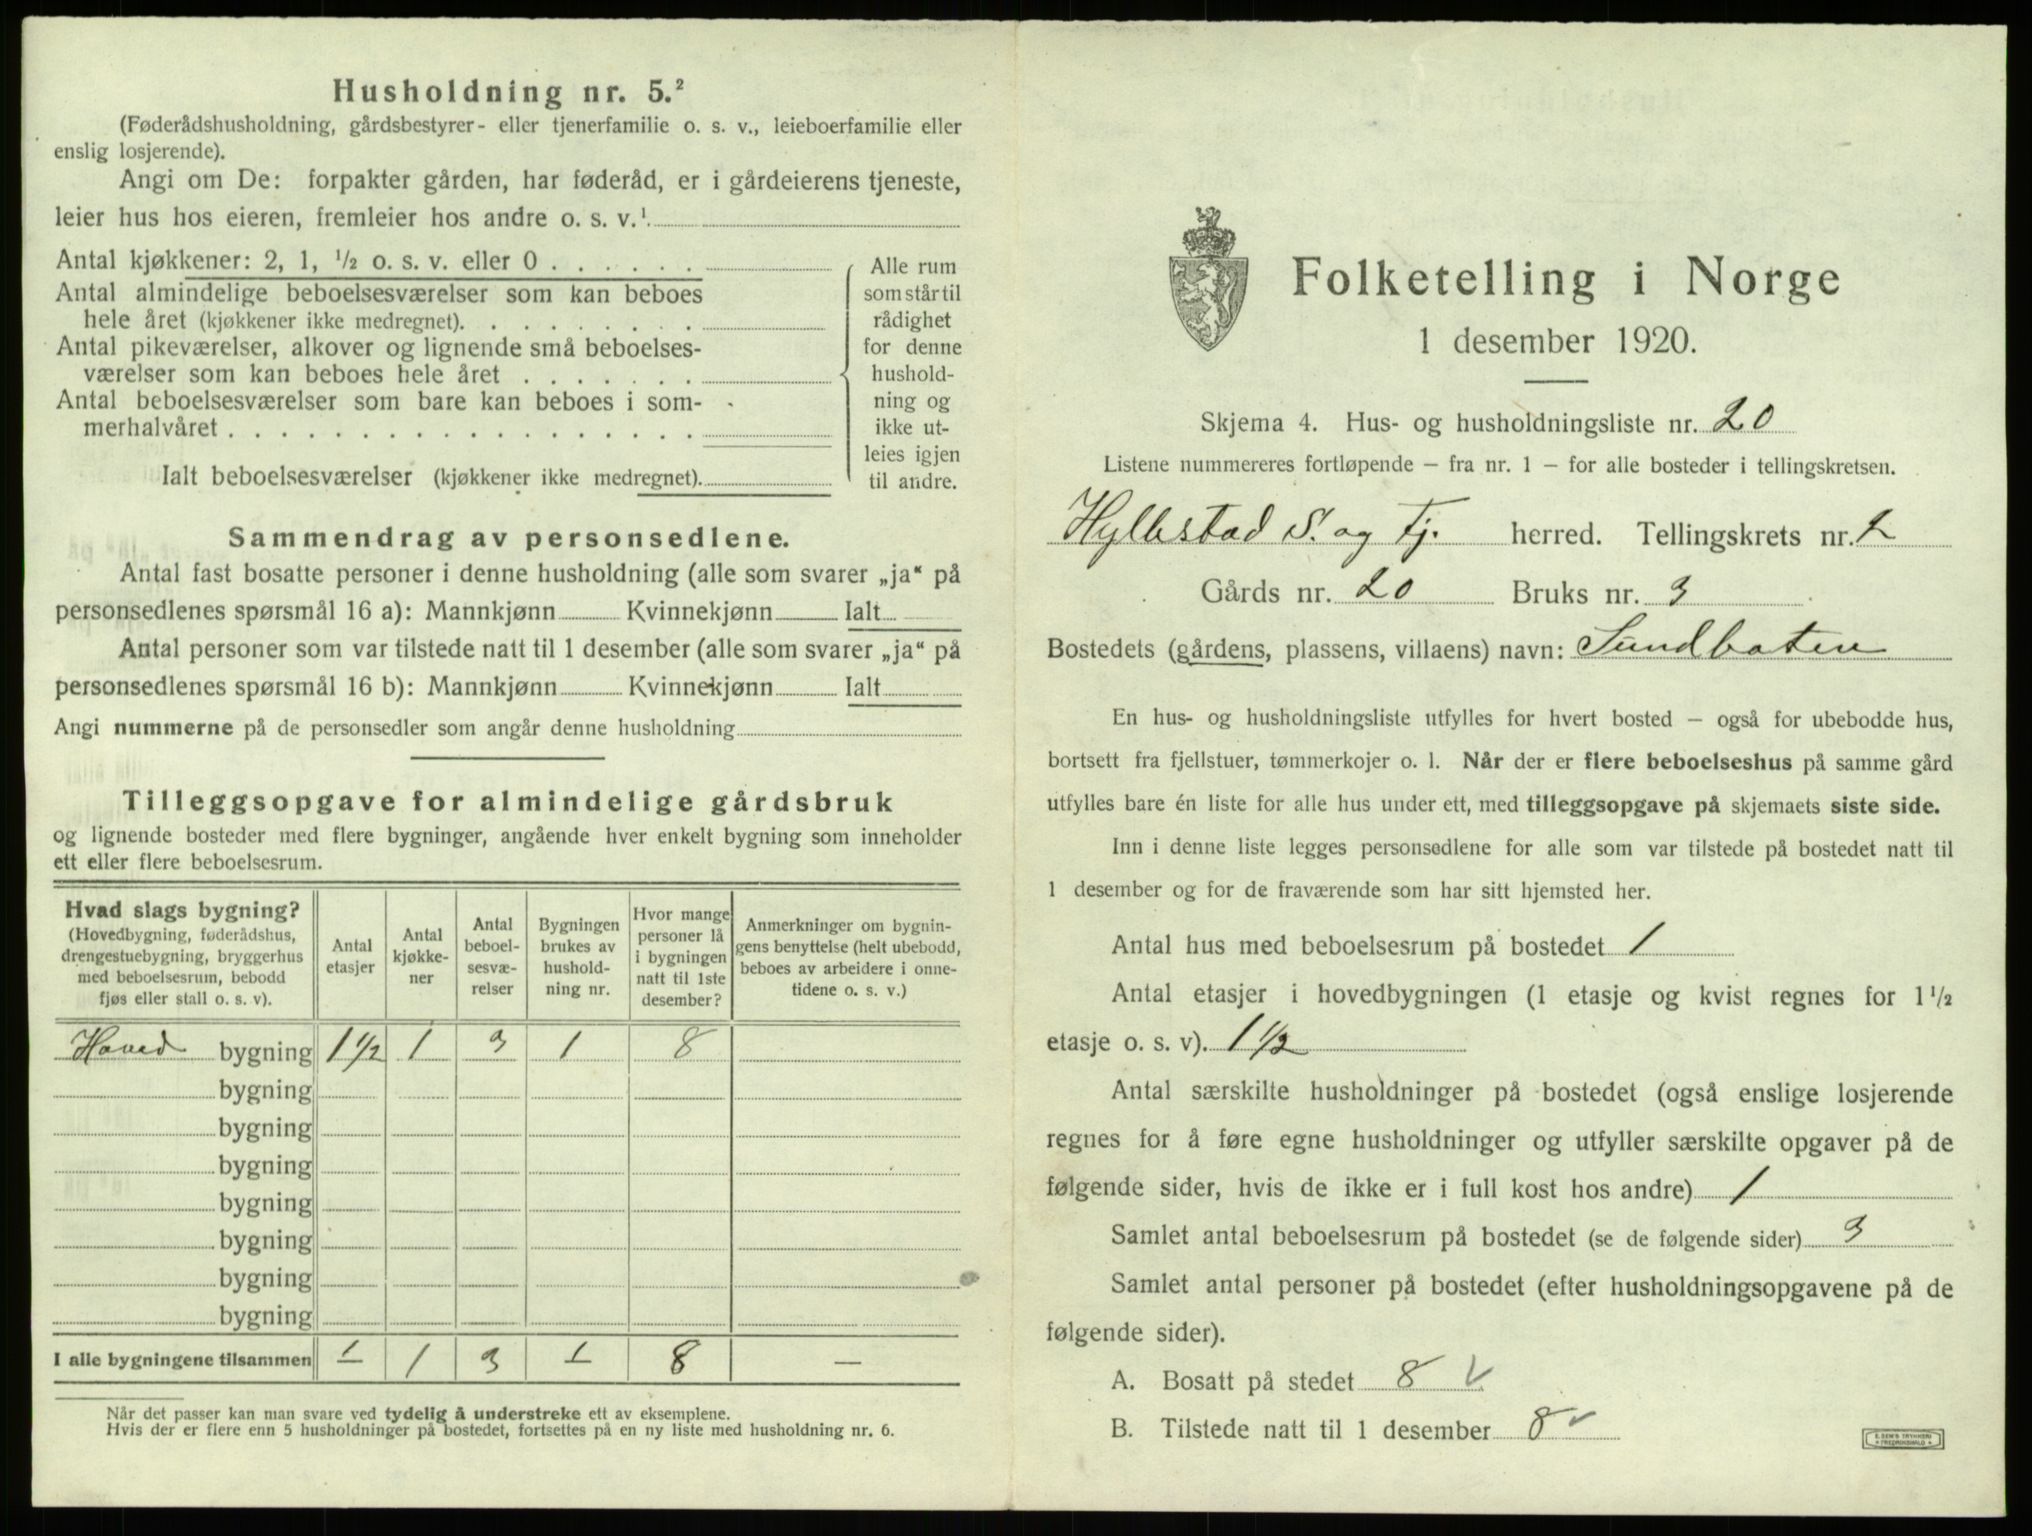 Husholdning nr. 5.²
(Føderådshusholdning, gårdsbestyrer- eller tjenerfamilie o. s. v., leieboerfamilie eller
enslig losjerende).
Angi om De: forpakter gården, har føderåd, er i gårdeierens tjeneste,
leier hus hos eieren, fremleier hos andre o. s. v.¹
Antal kjøkkener: 2, 1, ½ o. s. v. eller 0
Antal almindelige beboelsesværelser som kan beboes
hele året (kjøkkener ikke medregnet).
Antal pikeværelser, alkover og lignende små beboelses-
værelser som kan beboes hele året
Antal beboelsesværelser som bare kan beboes i som-
merhalvåret
Ialt beboelsesværelser (kjøkkener ikke medregnet).
Alle rum
som står til
rådighet
for denne
hushold-
ning og
ikke ut-
leies igjen
til andre.
Sammendrag av personsedlene.
Antal fast bosatte personer i denne husholdning (alle som svarer „ja“ på
personsedlenes spørsmål 16 a): Mannkjønn Kvinnekjønn Ialt
Antal personer som var tilstede natt til 1 desember (alle som svarer „ja“ på
personsedlenes spørsmål 16 b): Mannkjønn Kvinnekjønn Ialt
Angi nummerne på de personsedler som angår denne husholdning
Tilleggsopgave for almindelige gårdsbruk
og lignende bosteder med flere bygninger, angående hver enkelt bygning som inneholder
ett eller flere beboelsesrum.
Hvad slags bygning?
(Hovedbygning, føderådshus,
drengestuebygning, bryggerhus
med beboelsesrum, bebodd
fjøs eller stall o. s. v).
Antal
etasjer
Antal
kjøkke-
ner
Antal
beboel-
sesvæ-
relser
Bygningen
brukes av
hushold-
ning nr.
Hvor mange
personer lå
i bygningen
natt til 1ste
desember?
Anmerkninger om bygnin-
gens benyttelse (helt ubebodd,
beboes av arbeidere i onne-
tidene o. s. v.)
Hoved bygning 1 ½ 1 3 1 8
bygning
bygning
bygning
bygning
bygning
bygning
bygning
I alle bygningene tilsammen 1 1 3 1 8 —
Når det passer kan man svare ved tydelig å understreke ett av eksemplene.
Hvis der er flere enn 5 husholdninger på bostedet, fortsettes på en ny liste med husholdning nr. 6.
Folketelling i Norge
1 desember 1920.
Skjema 4. Hus- og husholdningsliste nr. 20
Listene nummereres fortløpende – fra nr. 1 – for alle bosteder i tellingskretsen.
Hyllestad S. og Fj. herred. Tellingskrets nr. 2
Gårds nr. 20 Bruks nr. 3
Bostedets (gårdens, plassens, villaens) navn: Sundboten
En hus- og husholdningsliste utfylles for hvert bosted – også for ubebodde hus,
bortsett fra fjellstuer, tømmerkojer o. l. Når der er flere beboelseshus på samme gård
utfylles bare én liste for alle hus under ett, med tilleggsopgave på skjemaets siste side.
Inn i denne liste legges personsedlene for alle som var tilstede på bostedet natt til
1 desember og for de fraværende som har sitt hjemsted her.
Antal hus med beboelsesrum på bostedet 1
Antal etasjer i hovedbygningen (1 etasje og kvist regnes for 1½
etasje o. s. v). 1 ½
Antal særskilte husholdninger på bostedet (også enslige losjerende
regnes for å føre egne husholdninger og utfyller særskilte opgaver på de
følgende sider, hvis de ikke er i full kost hos andre) 1
Samlet antal beboelsesrum på bostedet (se de følgende sider) 3
Samlet antal personer på bostedet (efter husholdningsopgavene på de
følgende sider).
A. Bosatt på stedet 8 ✓
B. Tilstede natt til 1 desember 8 ✓